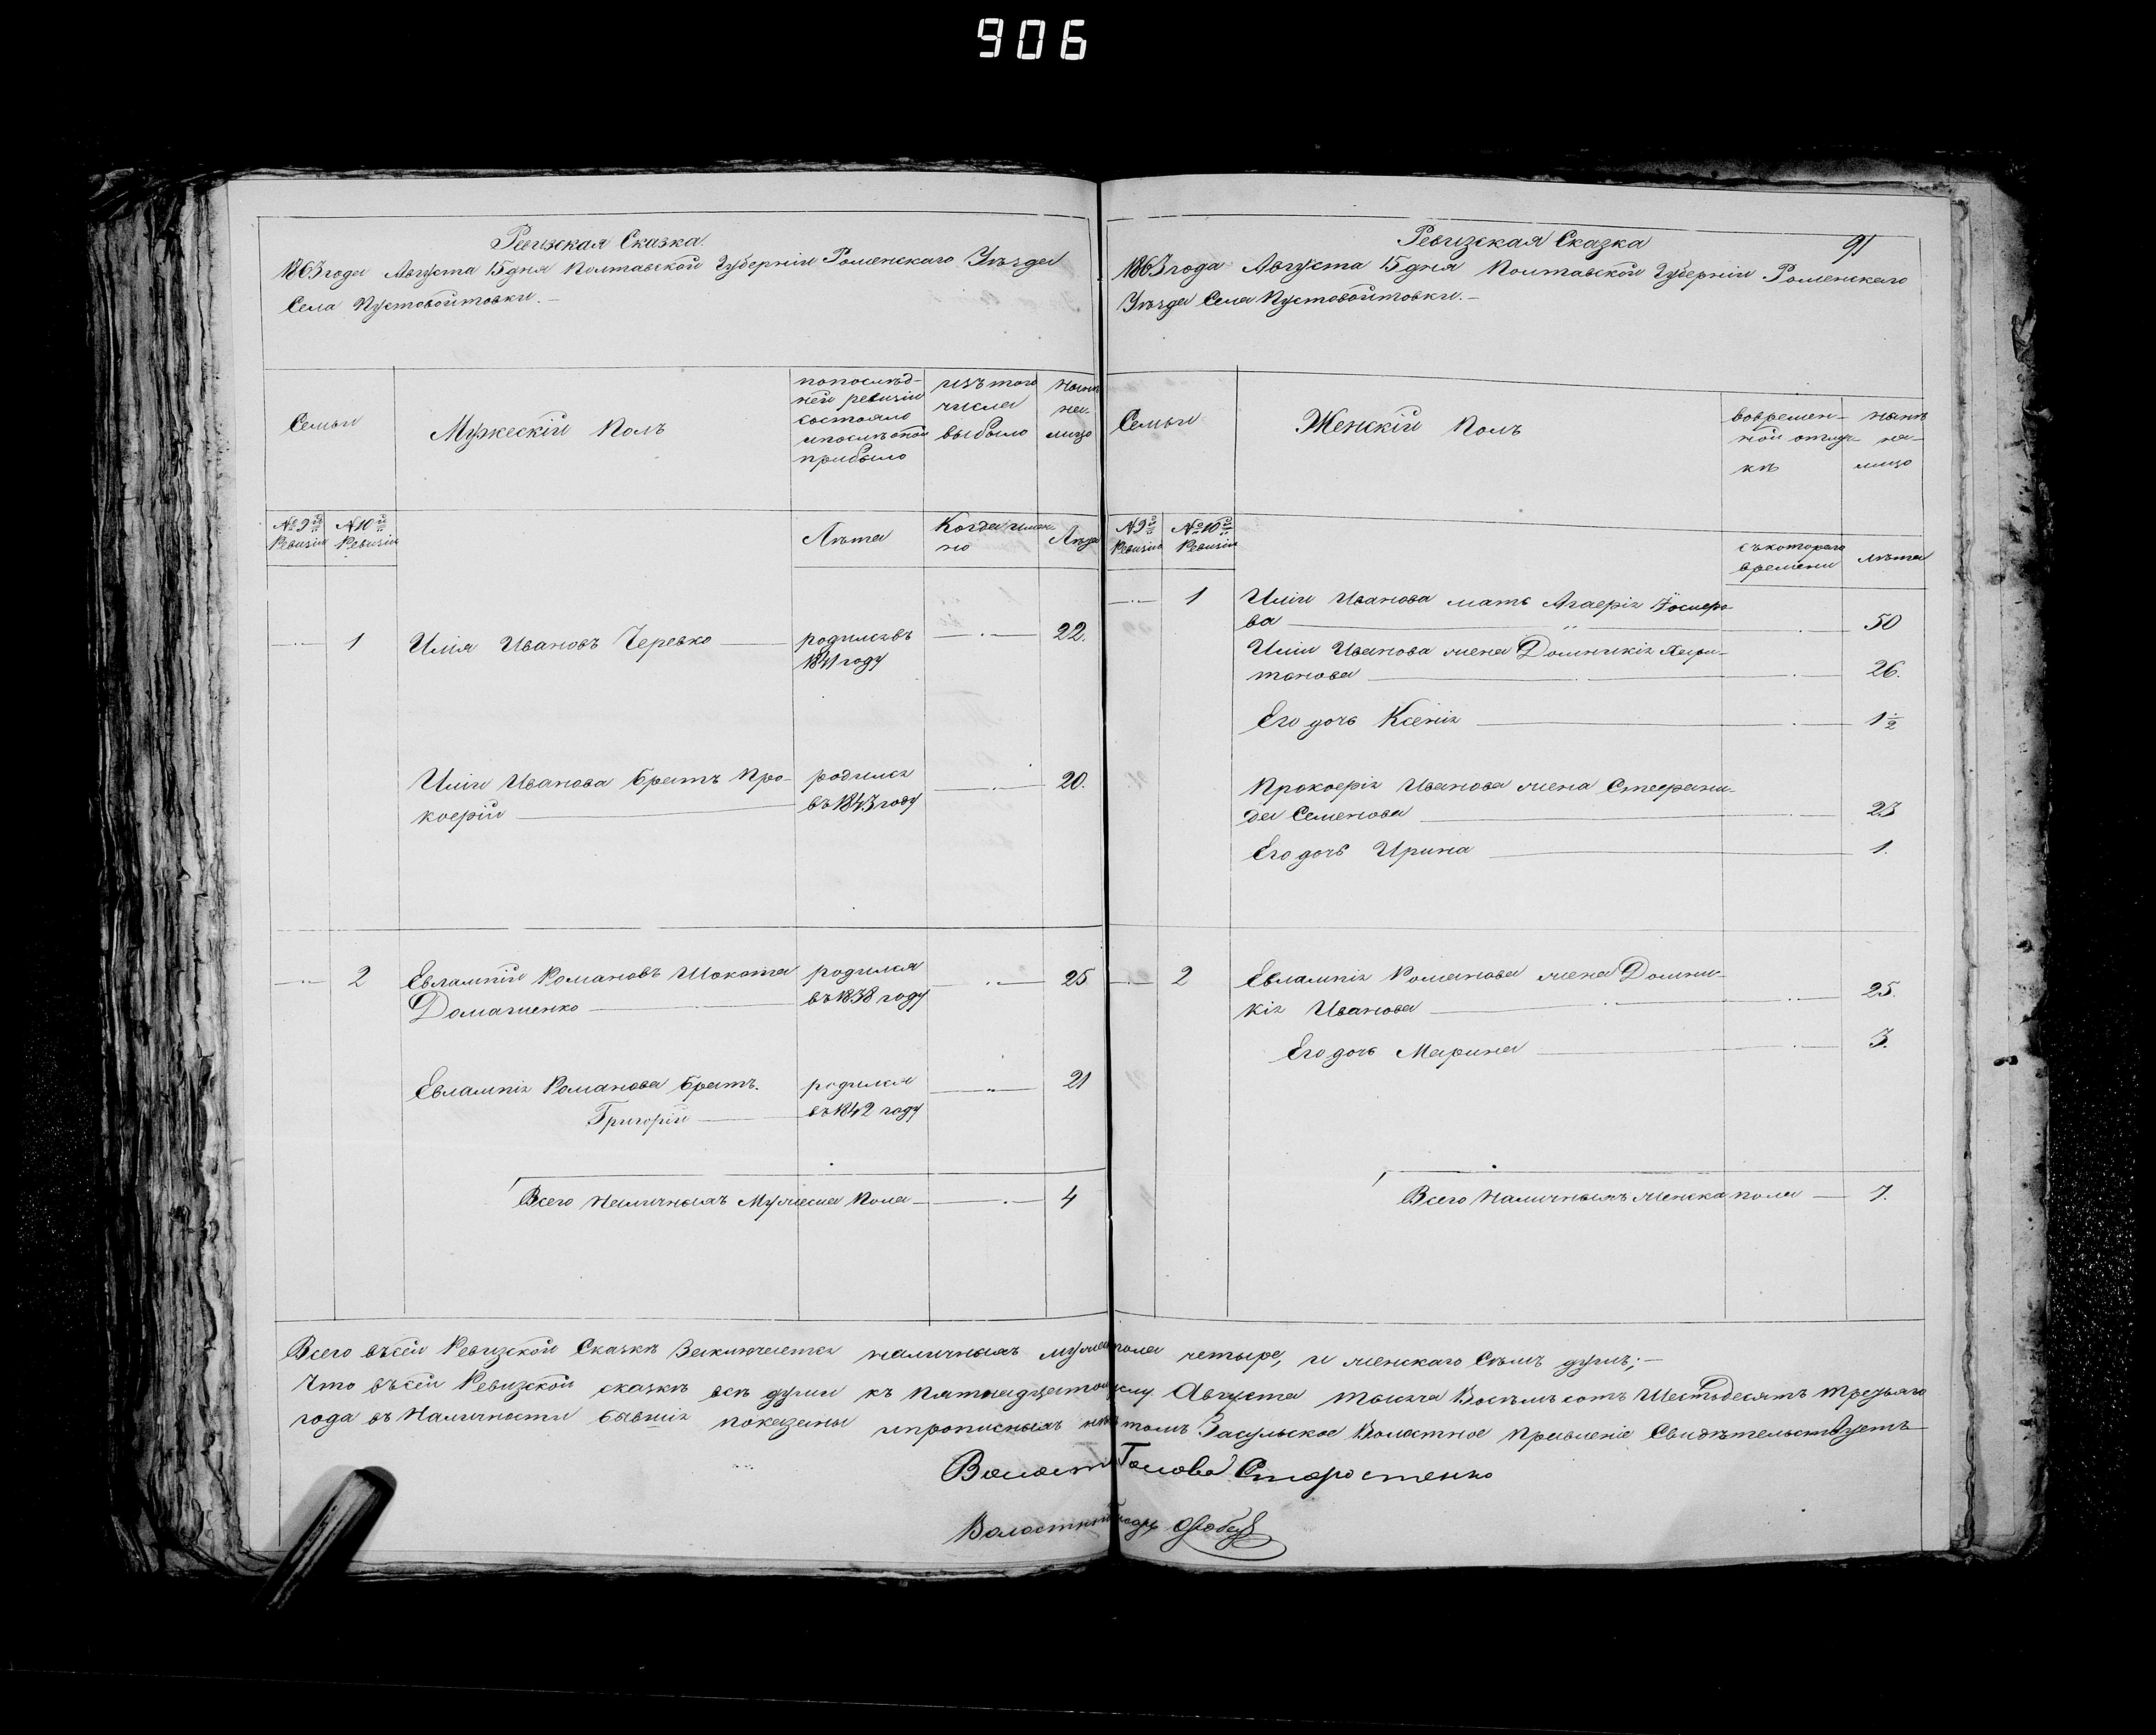 906
Ревизская Сказка.
1863 года Августа 15 дня Полтавской Губерніи Роменскаго Уѣзда
Села Пустовойтовки.—
Семьи
Мужескій Полъ
попослѣд-
ней ревизіи
состояло
ипослѣ того
прибыло
изъ того
числа
выбыло
нынѣ
на-
лицо
№ 9й
Ревизіи
№ 10й
Ревизіи
Лѣта
Когда имен-
но
Лѣта
1 Илія Ивановъ Черевко родилсявъ 22.
1841 году
Иліи Иванова братъ Про- родился 20.
кофій въ 1843 году
2 Евлампій Романовъ Шокота родился 25
Домашенко въ 1838 году
Евлампія Романова братъ родился 21
Григорій въ 1842 году
Всего Наличныхъ Мужеска Пола 4
Ревизская Сказка 91
1863 года Августа 15 дня Полтавской Губерніи Роменскаго
Уѣзда Села Пустовойтовки.—
Семьи
Женскій Полъ
вовремен-
ной отлуч-
кѣ
нынѣ
на-
лицо
№ 9й
Ревизіи
№ 10й
Ревизіи
съкотораго
времени
лѣта
1 Иліи Иванова мать Агафія
ва 50
Иліи Иванова жена Домникія Хари-
тонова 26.
Его дочь Ксенія 1½
Прокофія Иванова жена Стефани-
да Семенова 23
Его дочь Ирина 1.
2 Евлампія Романова жена Домни-
кія Иванова 25.
Его дочь Марина 3.
Всего Наличныхъ женска пола 7.
Всего въсей Ревизской Сказкѣ Заключается наличныхъ муже пола четыре, и женскаго Съмъ душъ;—
Что въсей Ревизской сказкѣ всѣ души къ Пятнадцатому Августа тысяча Восѣмъсотъ Шестьдесятъ третьяго
года въ Наличности бывшія показаны ипрописныхъ нѣтъ томъ Засульское Волостное Правленіе Свидѣтельствуетъ
Волост Голова Старостенко
Волостный